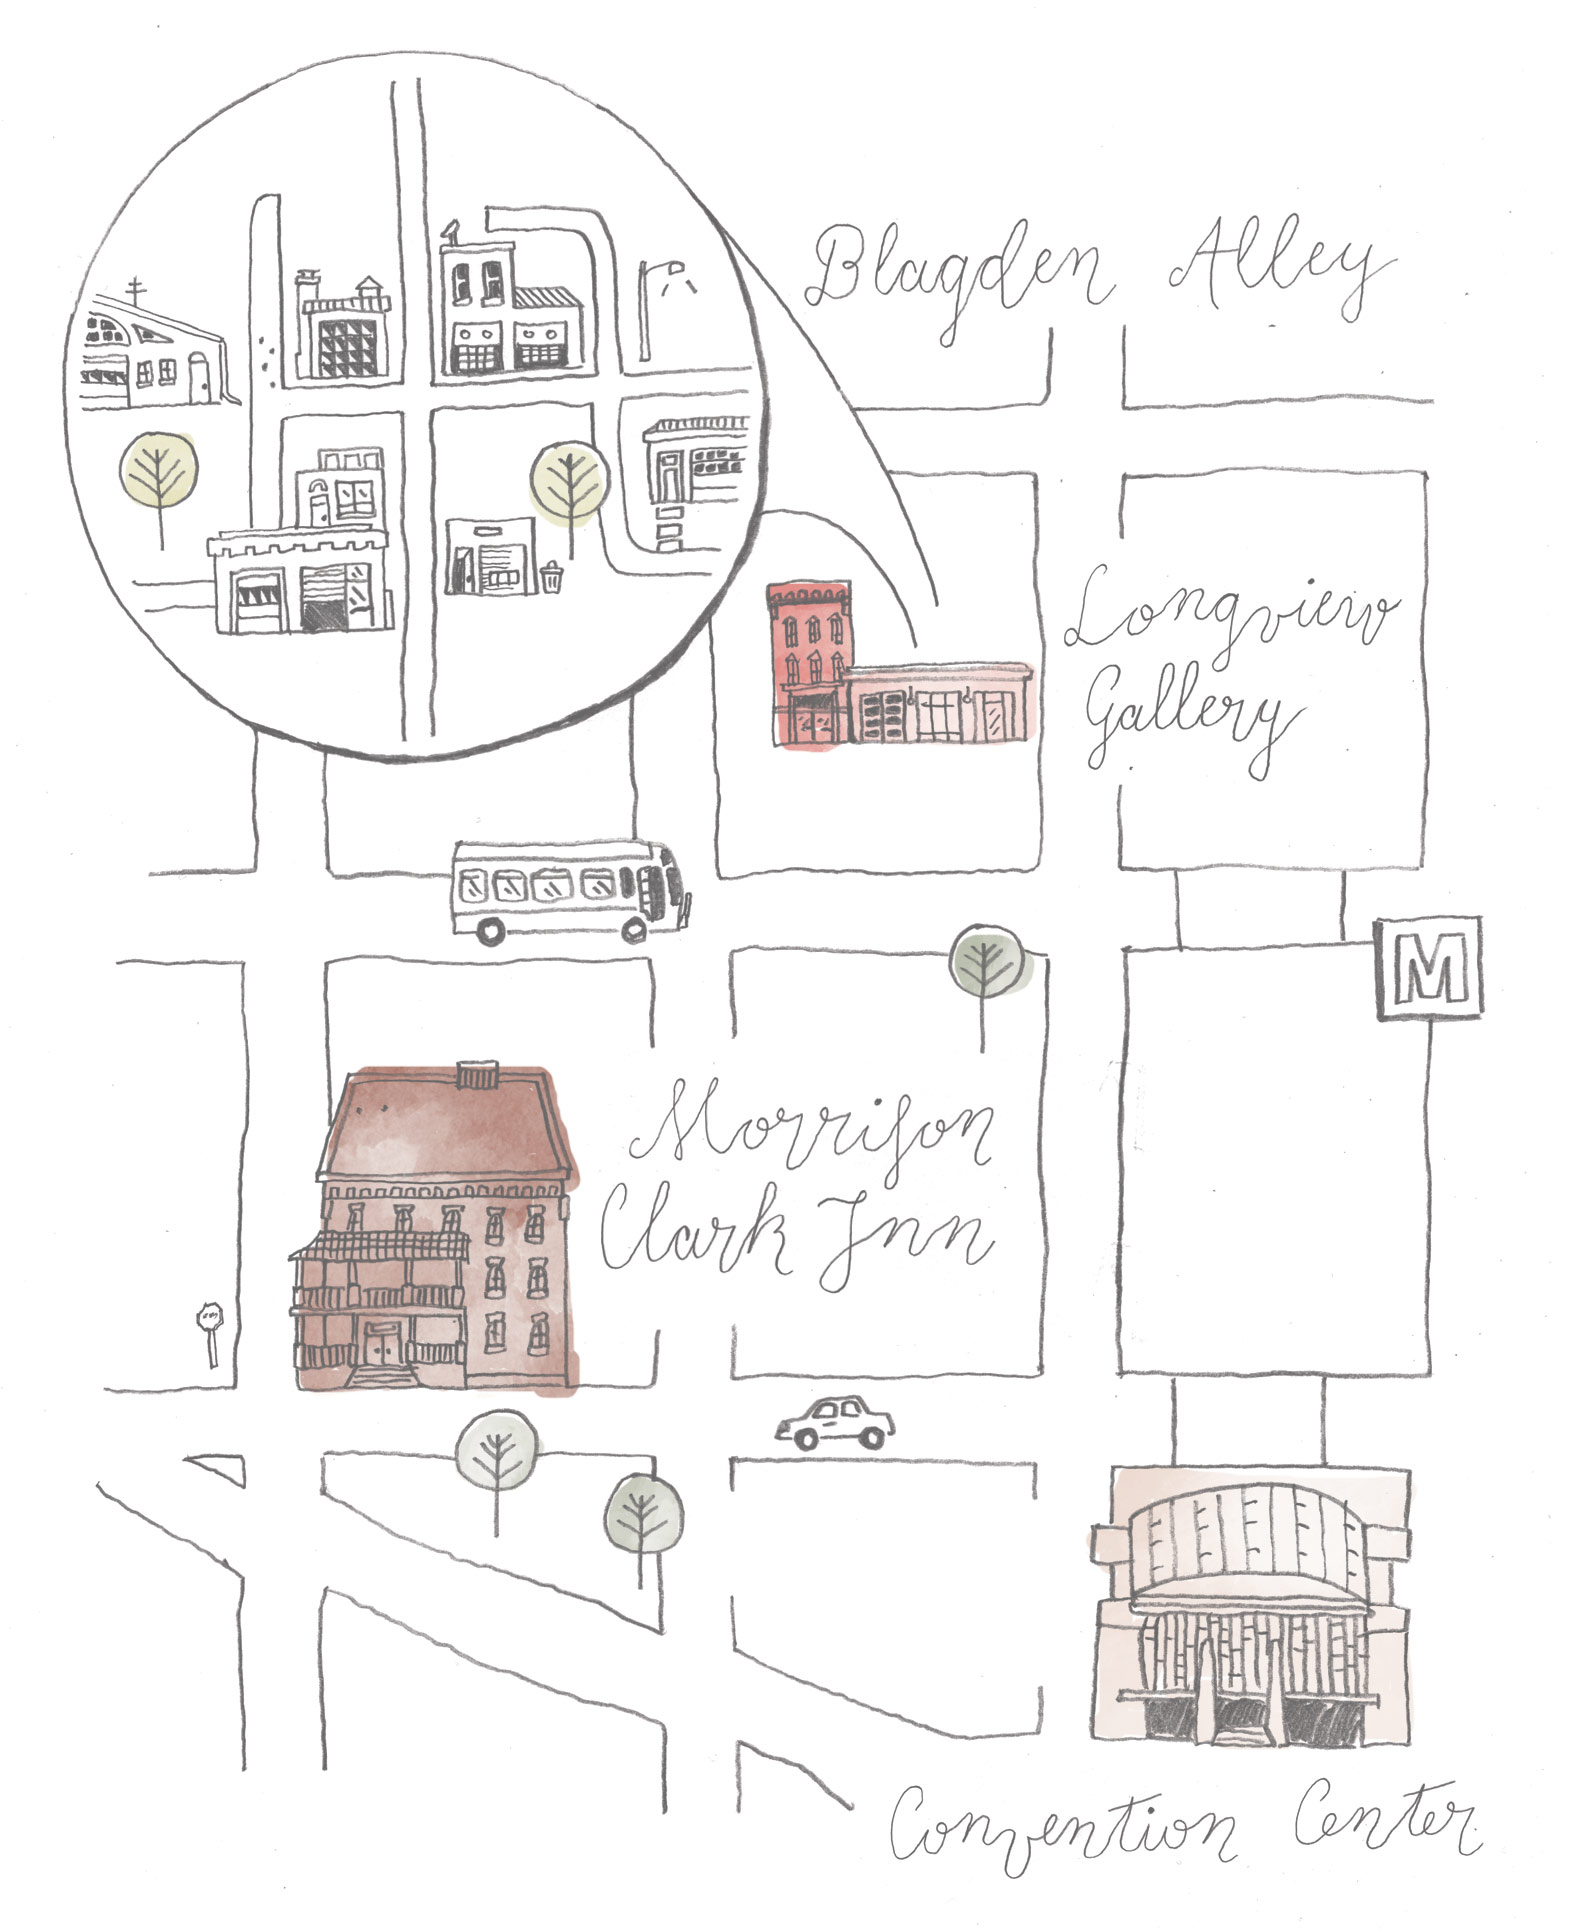 Blagden Alley
Longview
Gallery
M
Morrison
Clark Inn
Convention Center